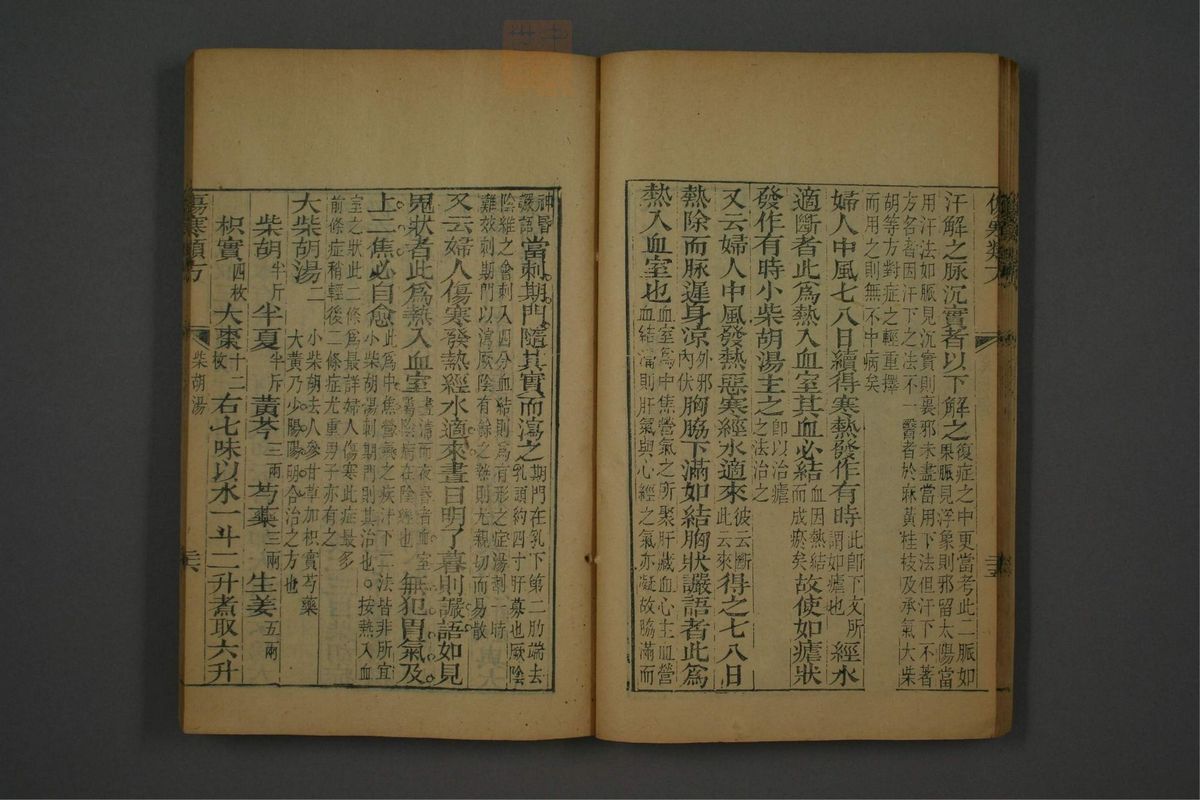 汗解之脉沉實者以下解之復症之中更當考此二脈如
果脈見浮象則邪留太陽當
用汗法如脈見沉實則裏邪未盡當用下法但汗下不著
方名者因汗下之法不一醫者於麻黃桂枝及承氣大柴
胡等方對症之輕重擇
而用之則無不中病矣
婦人中風七八日續得寒熱發作有時此卽下文所
謂如瘧也經水
適斷者此爲熱入血室其血必結血因熱結
而成瘀矣故使如瘧狀
發作有時小柴胡湯主之卽以治瘧
之法治之
又云婦人中風發熱惡寒經水適來彼云斷
此云來得之七八日
熱除而脉遲身凉外邪
內伏胸脇下滿如結胸狀讝語者此爲
熱入血室也血室爲中焦營氣之所聚肝藏血心主血營
血結滯則肝氣與心經之氣亦凝故脇滿而
傷寒類方
三五
神昏
讝語當刺期門隨其實而瀉之期門在乳下第二肋端去
乳頭約四寸肝募也厥陰
陰維之會刺入四分血結則爲有形之症湯劑一時
難效刺期門以瀉厥陰有餘之熱則尤親切而易散
又云婦人傷寒發熱經水適來晝日明了暮則讝語如見
鬼狀者此爲熱入血室晝清而夜昏者血室
屬陰病在陰經也無犯胃氣及
上二焦必自愈此爲中焦營氣之疾汗下二法皆非所宜
小柴胡湯刺期門則其治也按熱入血
室之狀此二條爲最詳婦人傷寒此症最多
前條症稍輕後二條症尤重男子亦有之
大柴胡湯二
小柴胡去人參甘草加枳實芍藥
大黃乃少陽陽明合治之方也
柴胡半斤 半夏半斤 黃芩三兩 芍藥三兩 生姜五兩
枳實四枚 大棗十二
枚 右七味以水一斗二升煮取六升
傷寒類方
柴胡湯
三六